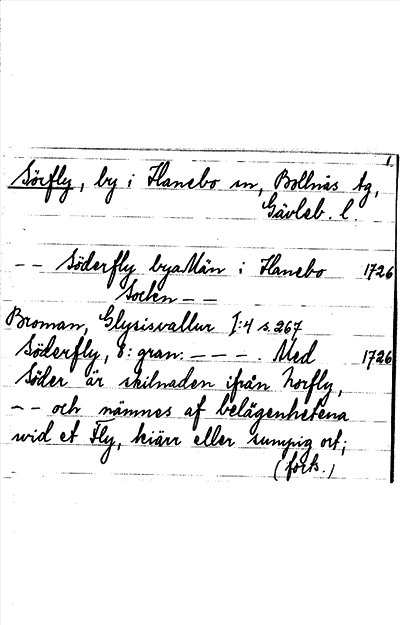 1.
Sörfly, by i Hanebo sn, Bollnäs tg,
Gävleb. l.
-- Söderfly byaMän i Hanebo 1726
Socken --
Broman, Glysisvallur I:4 s. 267
Söderfly, 8: gran: --- . Med 1726
Söder är skilnaden ifrån Norfly,
-- och nämnes af belägenhetena
wid et Fly, kiärr eller sumpig ort;
(forts.)